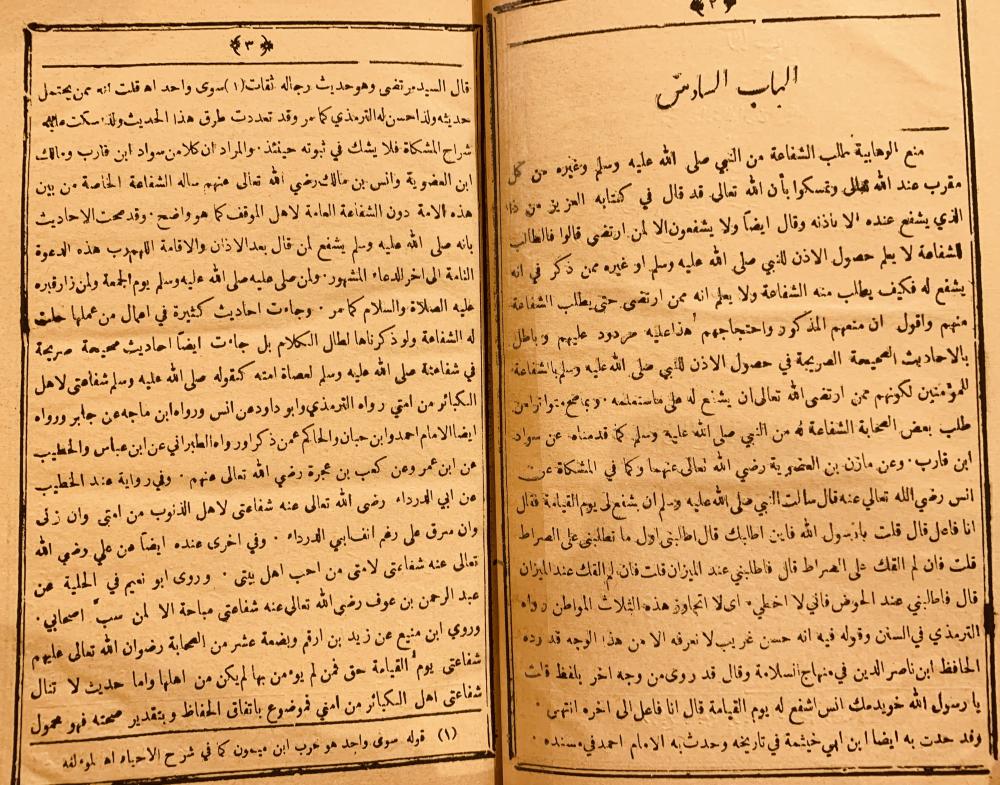 ﴿٢﴾
الباب السادس
منع الوهابية طلب الشفاعة من النبي صلى الله عليه وسلم وغيره من كل
مقرب عند الله تعالى وتمسكوا بأن الله تعالى قد قال في كتابه العزيز من ذا
الذي يشفع عنده الا باذنه وقال ايضاً ولا يشفعون الا لمن ارتضى قالوا فالطالب
للشفاعة لا يعلم حصول الاذن للنبي صلى الله عليه وسلم او غيره ممن ذكر في انه
يشفع له فكيف يطلب منه الشفاعة ولا يعلم انه ممن ارتضى حتى يطلب الشفاعة
منهم واقول ان منعهم المذكور واحتجاجهم هذا عليه مردود عليهم وباطل
بالاحاديث الصحيحة الصريحة في حصول الاذن للنبي صلى الله عليه وسلم بالشفاعة
للمؤمنين لكونهم ممن ارتضى الله تعالى ان يشفع له على ماستعلمه
طلب بعض الصحابة الشفاعة له من النبي صلى الله عليه وسلم كما قدمناه عن سواد
ابن قارب. وعن مازن بن العضوية رضي الله تعالى عنهما وكما في المشكاة عن
انس رضي الله تعالى عنه قال سالت النبي صلى الله عليه وسلم ان يشفع لي يوم القيامة فقال
انا فاعل قال قلت يا رسول الله فاين اطلبك قال اطلبني اول ما تطلبني على الصراط
قلت فان لم القك على الصراط قال فاطلبني عند الميزان قلت فان لم القك عند الميزان
قال فاطلبني عند الحوض فاني لا اخطيء اى لا اتجاوز هذه الثلاث المواطن رواه
الترمذي في السنن وقوله فيه انه حسن غريب لا نعرفه الا من هذا الوجه قد رده
الحافظ ابن ناصر الدين في منهاج السلامة وقال قد روى من وجه اخر بلفظ قلت
يا رسول الله خويدمك انس اشفع له يوم القيامة قال انا فاعل الى اخره انتهى.
وقد حدث به ايضا ابن ابي خيثمة في تاريخه وحدث به الامام احمد في مسنده.
﴿٣﴾
قال السيد مرتضى وهو حديث رجاله ثقات (١) سوى واحد اهـ قلت انه ممن يحتمل
حديثه ولذا حسن له الترمذي كما مر وقد تعددت طرق هذا الحديث ولذا سكت عليه
شراح المشكاة فلا يشك في ثبوته حينئذ. والمراد ان كلا من سواد ابن قارب ومالك
ابن العضوية وانس بن مالك رضي الله تعالى عنهم ساله الشفاعة الخاصة من بين
هذه الامة دون الشفاعة العامة لاهل الموقف كما هو واضح. وقد صحت الاحاديث
بانه صلى الله عليه وسلم يشفع لمن قال بعد الاذان والاقامة اللهم رب هذه الدعوة
التامة الى اخر الدعاء المشهور. ولمن صلى عليه صلى الله عليه وسلم يوم الجمعة ولمن زار قبره
عليه الصلاة والسلام كما مر. وجاءت احاديث كثيرة في اعمال من عملها حلت
له الشفاعة ولو ذكرناها لطال الكلام بل جاءت ايضاً احاديث صحيحة صريحة
في شفاعته صلى الله عليه وسلم لعصاة امته كقوله صلى الله عليه وسلم شفاعتي لاهل
الكبائر من امتي رواه الترمذي وابو داود عن انس ورواه ابن ماجه عن جابر ورواه
ايضا الامام احمد وابن حبان والحاكم عمن ذكر اورواه الطبراني عن ابن عباس والخطيب
عن ابن عمر وعن كعب بن عجرة رضي الله تعالى عنهم. وفي رواية عند الخطيب
عن ابي الدرداء رضي الله تعالى عنه شفاعتي لاهل الذنوب من امتي وان زنى
وان سرق على رغم انف ابي الدرداء. وفي اخرى عنده ايضاً عن علي رضي الله
تعالى عنه شفاعتي لامتى من احب اهل بيتى. وروى ابو نعيم في الحلية عن
عبد الرحمن بن عوف رضي الله تعالى عنه شفاعتي مباحة الا لمن سب اصحابي.
وروي ابن منيع عن زيد بن ارقم وبضعة عشر من الصحابة رضوان الله تعالى عليهم
شفاعتي يوم القيامة حق فمن لم يومن بها لم يكن من اهلها واما حديث لا تنال
شفاعتي اهل الكبائر من امتي فموضوع باتفاق الحفاظ وبتقدير صحته فهو محمول
(١) قوله سوى واحد هو حرب ابن ميمون كما في شرح الاحياء اهـ لمؤلفه